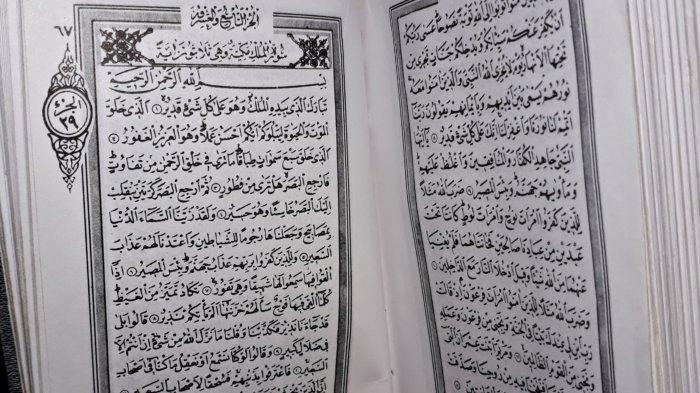 امنوا توبوا الى الله توبة نصوحا عسى ربكم
ان يكفر عنكم سيئاتكم ويدخلكم جنات تجري من
تحتها الانهار يوم لا يخزي الله النبي والذين امنوا معه
نورهم يسعى بين ايديهم وبايمانهم يقولون ربنا
اتمم لنا نورنا واغفر لنا انك على كل شيء قدير يا ايها
النبي جاهد الكفار والمنافقين واغلظ عليهم
وماويهم جهنم وبئس المصير ضرب الله مثلا
للذين كفروا امرات نوح وامرات لوط كانتا تحت
عبدين من عبادنا صالحين فخانتاهما فلم يغنيا
عنهما من الله شيئا وقيل ادخلا النار مع الداخلين
وضرب الله مثلا للذين امنوا امرات فرعون اذ قالت
رب ابن لي عندك بيتا في الجنة ونجني من فرعون وعمله
ونجني من القوم الظالمين ومريم ابنت عمران التي
احصنت فرجها فنفخنا فيه من روحنا وصدقت
٦٧
الجزء التاسع والعشرون
الجزء
٢٩
سورة الملك مكية وهي
بسم الله الرحمن الرحيم
تبارك الذي بيده الملك وهو على كل شيء قدير ١ الذي خلق
الموت والحيوة ليبلوكم ايكم احسن عملا وهو العزيز الغفور ٢
الذي خلق سبع سموات طباقا ما ترى في خلق الرحمن من تفاوت
فارجع البصر هل ترى من فطور ثم ارجع البصر كرتين ينقلب
اليك البصر خاسئا وهو حسير ولقد زينا السماء الدنيا
بمصابيح وجعلناها رجوما للشياطين واعتدنا لهم عذاب
السعير وللذين كفروا بربهم عذاب جهنم وبئس المصير اذا
القوا فيها سمعوا لها شهيقا وهي تفور تكاد تميز من الغيظ
كلما القي فيها فوج سالهم خزنتها الم ياتكم نذير قالوا بلى
قد جاءنا نذير فكذبنا وقلنا ما نزل الله من شيء ان انتم الا
في ضلال كبير وقالوا لو كنا نسمع او نعقل ما كنا في اصحاب
السعير فاعترفوا بذنبهم فسحقا لاصحاب السعير